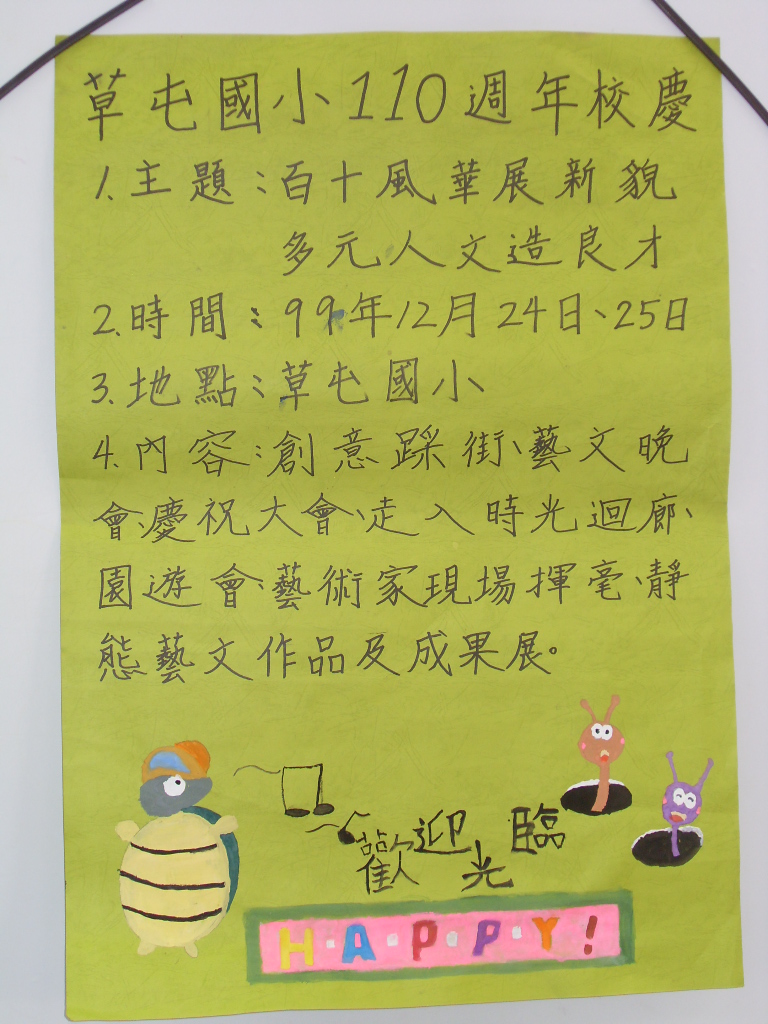 草屯國小110週年校慶
1.主題：百十風華展新貌
多元人文造良才
2.時間：99年12月24日、25日
3.地點：草屯國小
4.內容：創意踩街、藝文晚
會、慶祝大會、走入時光迴廊、
園遊會、藝術家現場揮毫、靜
態藝文作品及成果展。
歡迎光臨
H·A·P·P·Y!